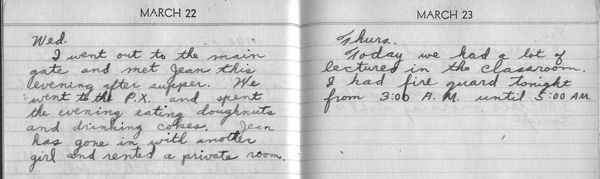 MARCH 22
Wed.
I went out to the main
gate and met Jean this
evening after supper. We
went to the P.X. and spent
the evening eating doughnuts
and drinking cokes. Jean
has gone in with another
girl and rented a private room.
MARCH 23
Thurs.
Today we had a lot of
lectures in the classroom.
I had fire guard tonight
from 3:00 A.M. until 5:00 AM.